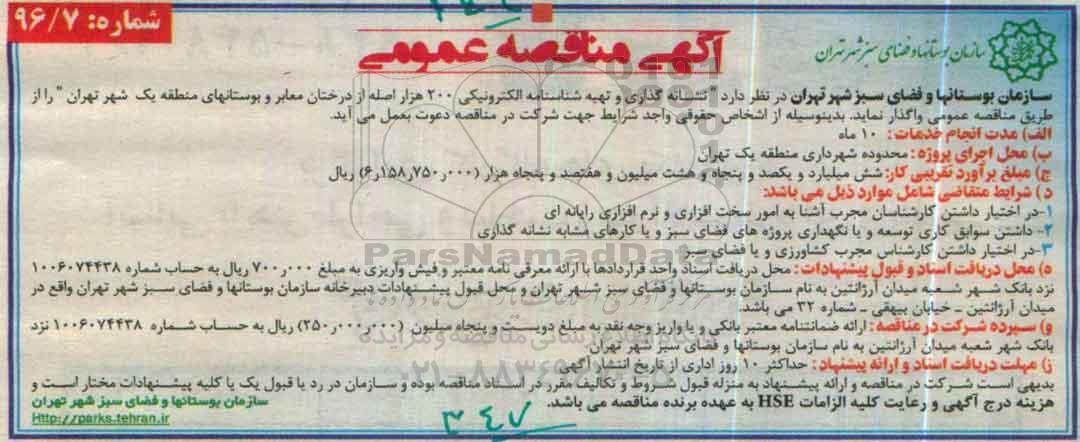 شماره: ۹۶/۷
آگهی مناقصه عمومی
سازمان بوستانها و فضای سبز شهر تهران
سازمان بوستانها و فضای سبز شهر تهران در نظر دارد " نشانه گذاری و تهیه شناسنامه الکترونیکی ۲۰۰ هزار اصله از درختان معابر و بوستانهای منطقه یک شهر تهران " را از
طریق مناقصه عمومی واگذار نماید. بدینوسیله از اشخاص حقوقی واجد شرایط جهت شرکت در مناقصه دعوت بعمل می آید.
الف) مدت انجام خدمات : ۱۰ ماه
ب) محل اجرای پروژه : محدوده شهرداری منطقه یک تهران
ج) مبلغ برآورد تقریبی کار: شش میلیارد و یکصد و پنجاه و هشت میلیون و هفتصد و پنجاه هزار (۶٫۱۵۸٫۷۵۰٫۰۰۰) ریال
د) شرایط متقاضی شامل موارد ذیل می باشد:
۱-در اختیار داشتن کارشناسان مجرب آشنا به امور سخت افزاری و نرم افزاری رایانه ای
۲- داشتن سوابق کاری توسعه و یا نگهداری پروژه های فضای سبز و یا کارهای مشابه نشانه گذاری
۳-در اختیار داشتن کارشناس مجرب کشاورزی و یا فضای سبز
ه) محل دریافت اسناد و قبول پیشنهادات : محل دریافت اسناد واحد قراردادها با ارائه معرفی نامه معتبر و فیش واریزی به مبلغ ۷۰۰٫۰۰۰ ریال به حساب شماره ۱۰۰۶۰۷۴۴۳۸
نزد بانک شهر شعبه میدان آرژانتین به نام سازمان بوستانها و فضای سبز شهر تهران و محل قبول پیشنهادات دبیرخانه سازمان بوستانها و فضای سبز شهر تهران واقع در
میدان آرژانتین ـ خیابان بیهقی ـ شماره ۳۲ می باشد.
و) سپرده شرکت در مناقصه : ارائه ضمانتنامه معتبر بانکی و یا واریز وجه نقد به مبلغ دویست و پنجاه میلیون (۲۵۰٫۰۰۰٫۰۰۰) ریال به حساب شماره ۱۰۰۶۰۷۴۴۳۸ نزد
بانک شهر شعبه میدان آرژانتین به نام سازمان بوستانها و فضای سبز شهر تهران.
ز) مهلت دریافت اسناد و ارائه پیشنهاد : حداکثر ۱۰ روز اداری از تاریخ انتشار آگهی
بدیهی است شرکت در مناقصه و ارائه پیشنهاد به منزله قبول شروط و تکالیف مقرر در اسناد مناقصه بوده و سازمان در رد یا قبول یک یا کلیه پیشنهادات مختار است و
هزینه درج آگهی و رعایت کلیه الزامات HSE به عهده برنده مناقصه می باشد.
سازمان بوستانها و فضای سبز شهر تهران
Http://parks.tehran.ir
ParsNamadData
۰۲۱-۸۸۳۴۹
۳۴۷